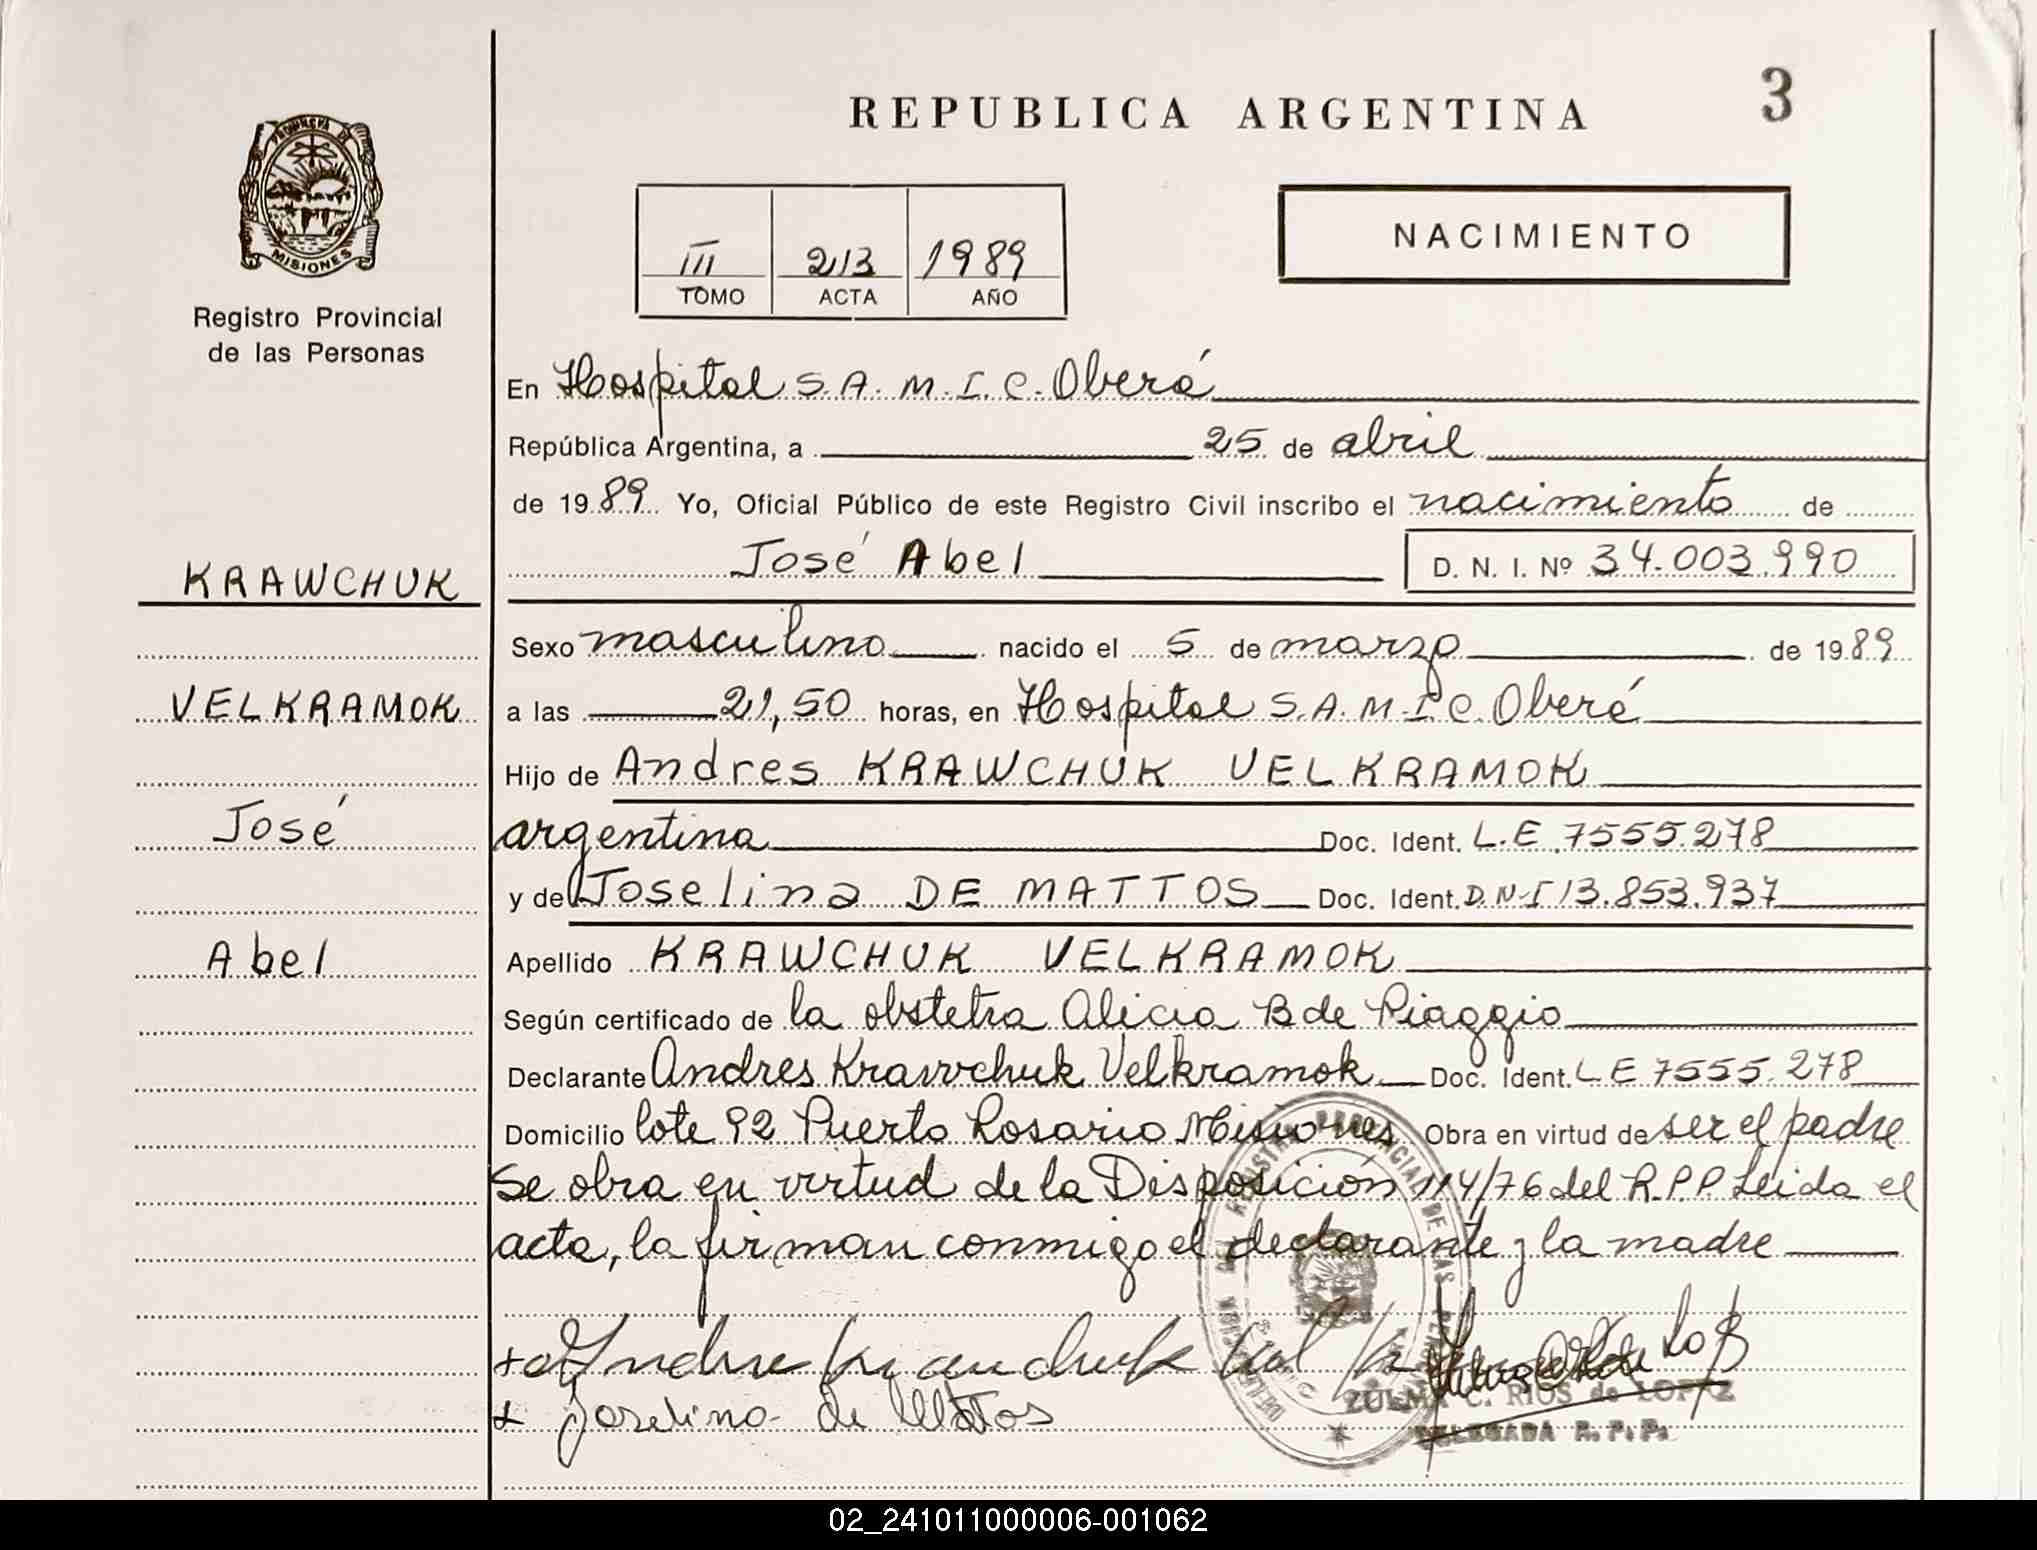 REPUBLICA ARGENTINA
3
PROVINCIA DE
MISIONES
Registro Provincial
de las Personas
III 213 1989
TOMO ACTA AÑO
NACIMIENTO
En Hospital S.A.M.I.C. Oberá
República Argentina, a 25 de abril
de 1989 Yo, Oficial Público de este Registro Civil inscribo el nacimiento de
José Abel D. N. I. Nº 34.003.990
KRAWCHUK
Sexo masculino nacido el 5 de marzo de 1989
VELKRAMOK
a las 21,50 horas, en Hospital S.A.M.I.C. Oberá
Hijo de Andres KRAWCHUK VELKRAMOK
José
argentina Doc. Ident. L.E. 7555.278
y de Joselina DE MATTOS Doc. Ident. D.N.I 13.853.937
Abel
Apellido KRAWCHUK VELKRAMOK
Según certificado de la obstetra Alicia B de Piaggio
Declarante Andres Krawchuk Velkramok Doc. Ident. L E 7555.278
Domicilio lote 92 Puerto Rosario Misiones Obra en virtud de ser el padre
Se obra en virtud de la Disposición 114/76 del R.P.P. Leida el
acta, la firman conmigo el declarante y la madre
Joselina de Mattos
ZULMA C. RIOS de LOPEZ
DELEGADA R. P. P.
02_241011000006-001062